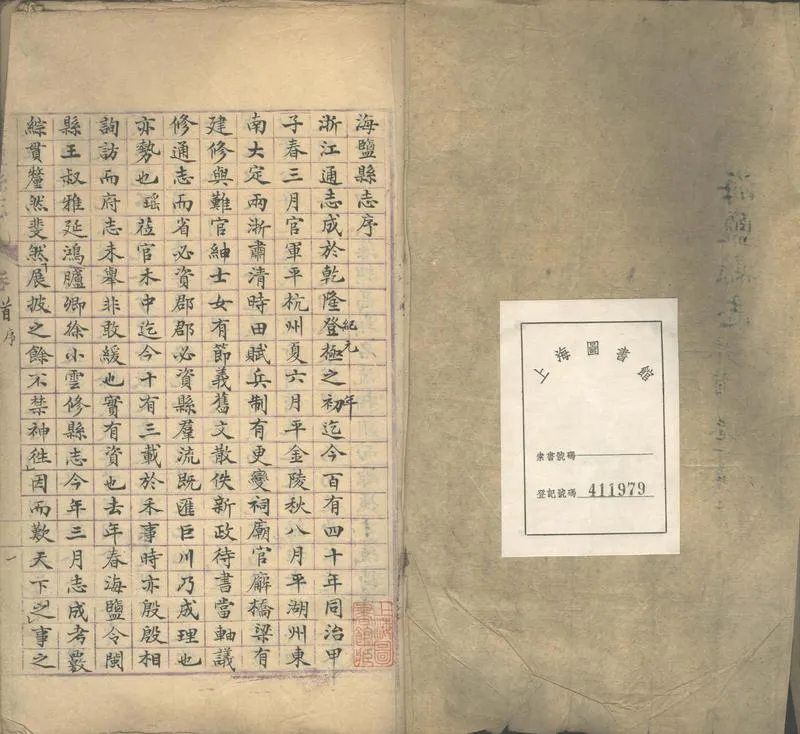 海鹽縣志序
浙江通志成於乾隆登極之初迄今百有四十年同治甲
紀元
年
子春三月官軍平杭州夏六月平金陵秋八月平湖州東
南大定兩浙肅清時田賦兵制有更變祠廟官廨橋梁有
建修與難官紳士女有節義舊文散佚新政待書當軸議
修通志而省必資郡郡必資縣羣流既匯巨川乃成理也
亦勢也瑶莅官禾中迄今十有三載於禾事時亦殷殷相
詢訪而府志未舉非敢緩也實有資也去年春海鹽令閩
縣王叔雅延鴻臚卿徐小雲修縣志今年三月志成考覈
綜貫釐然斐然展披之餘不禁神往因而歎天下之事之
首序
一
上海圖書館
索書號碼
登記號碼 411979
海鹽縣志